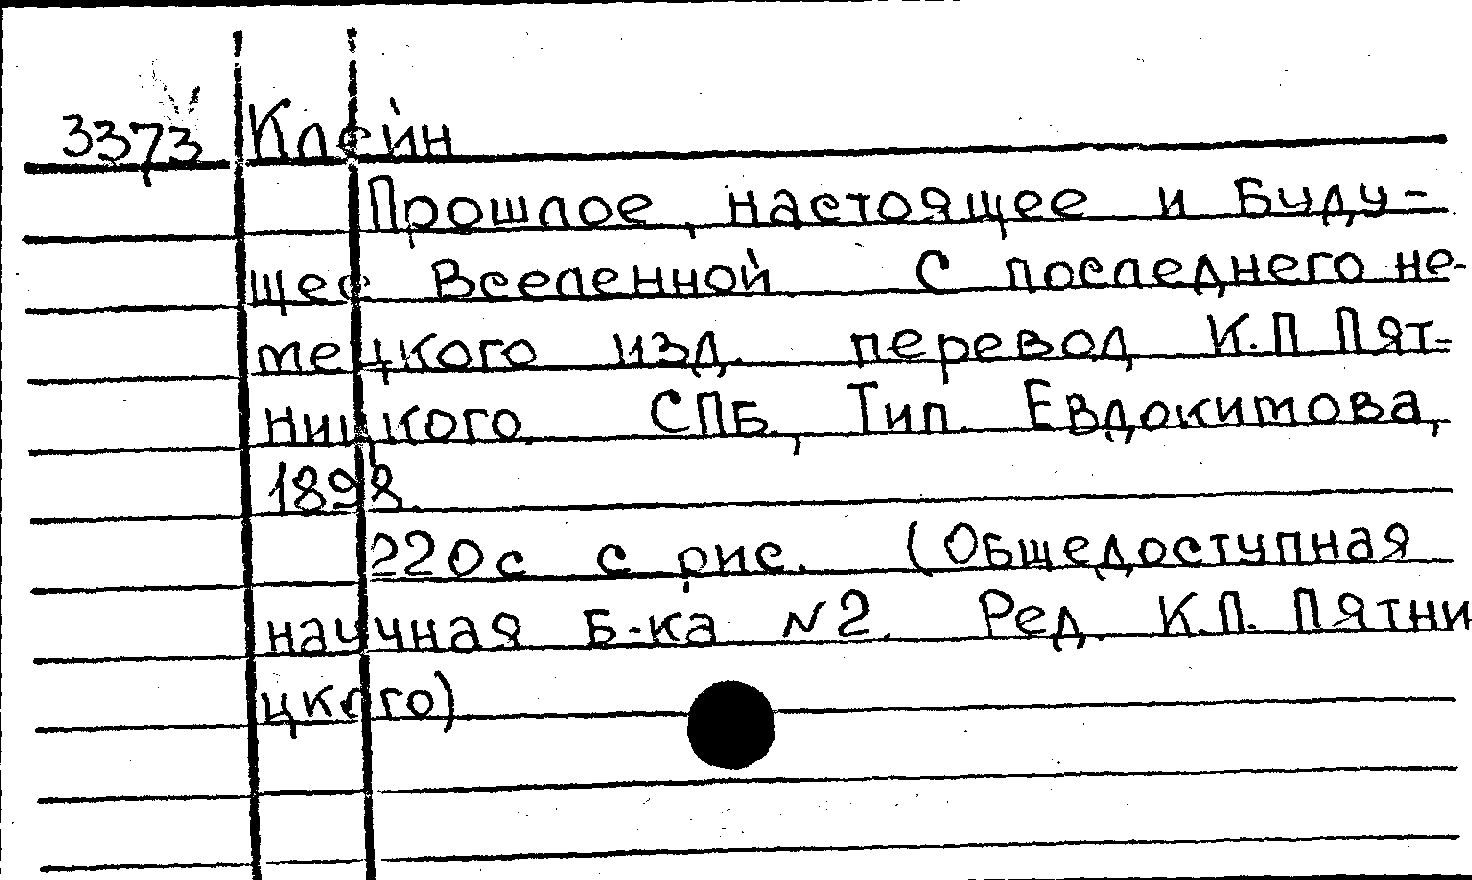 3373 Клейн
Прошлое, настоящее и Буду-
щее Вселенной С последнего не-
мецкого изд. перевод К.П Пят-
ницкого. СПБ., Тип. Евдокимова,
1898.
220с с рис. (Общедоступная
научная Б-ка N2. Ред. К.П. Пятни
цкого)